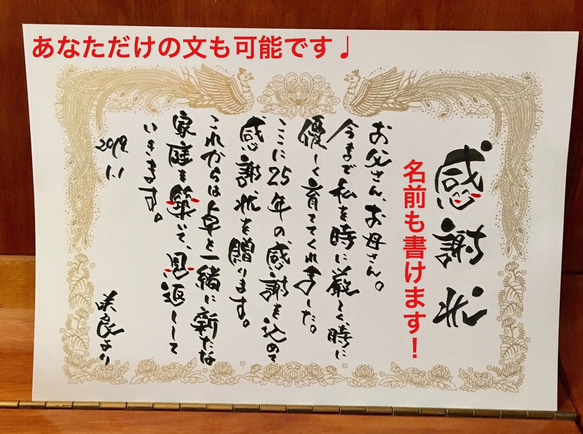 あなただけの文も可能です♩
感謝状
名前も書けます！
お父さん、お母さん。
今まで私を時に厳しく時に
優しく育ててくれました。
ここに25年の感謝を込めて
感謝状を贈ります。
これからは卓と一緒に新たな
家庭を築いて、恩返しして
いきます。
2019
1.1
美良より